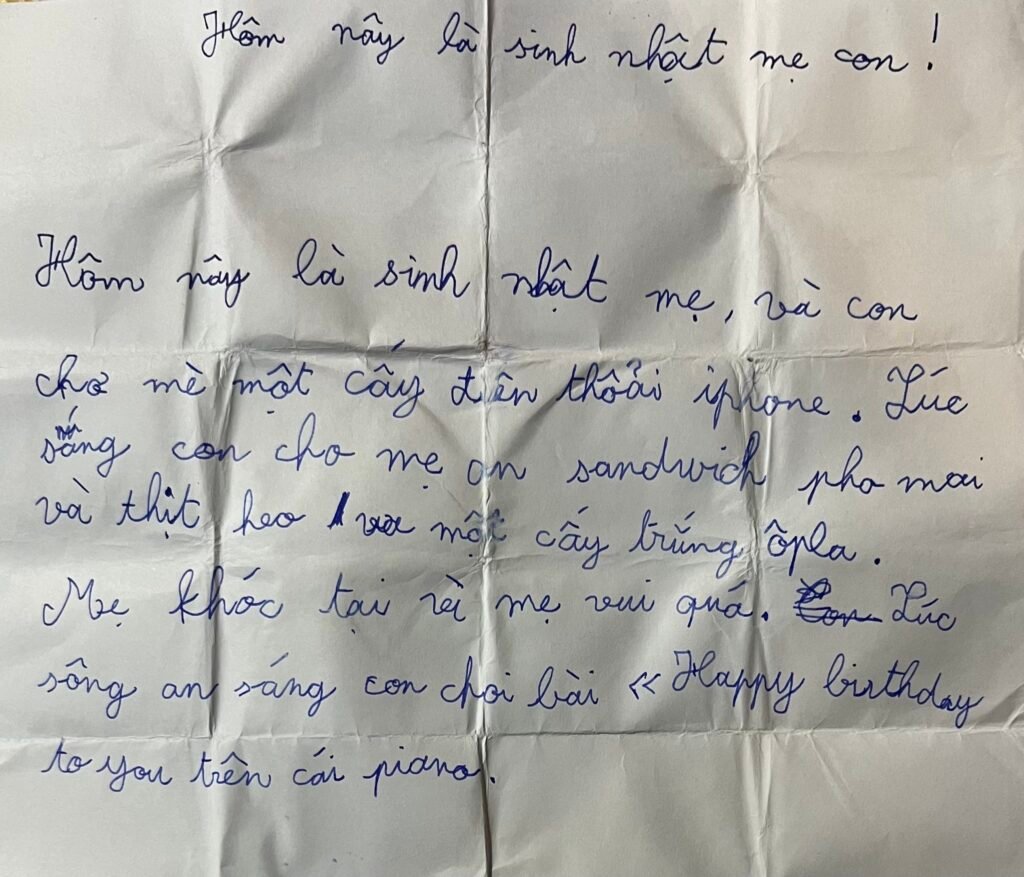 Hôm nây là sinh nhật mẹ con !
Hôm nây là sinh nhật mẹ, và con
cho mè một cấy điên thôải iphone. Lúc
sáng con cho mẹ an sandwich pho mai
và thịt heo và một cấy trứng ôpla.
Mẹ khóc tại vì mẹ vui quá. Lúc
sông an sáng con chơi bài « Happy birthday
to you trên cái piano.